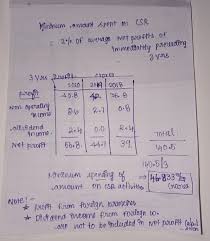 Minimum amount spent on CSR
= 2% of average net profits of
immediately preceeding
3 yrs
3 Yrs Profit
2020 2019 2018
Profit 45.8 42. 36.8
Non operating 8.6 2.7 0.8
income
Dividend 2.4 0.0 2.4
income
Net profit 56.8 44.7 39
Total
140.5
140.5/3
Minimum spending of = 46.833
amount on CSR activities
Note:-
* Profit from foreign branches
* Dividend Income from foreign co.
are not to be included in net profit